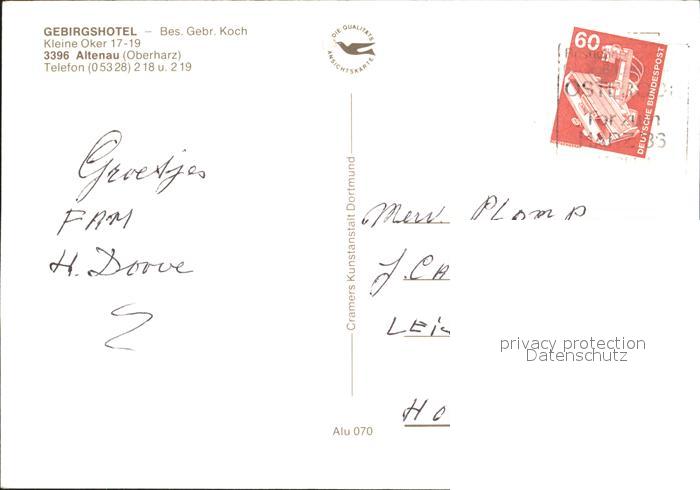 GEBIRGSHOTEL – Bes. Gebr. Koch
Kleine Oker 17-19
3396 Altenau (Oberharz)
Telefon (0 53 28) 2 18 u. 2 19
DIE QUALITÄTS
ANSICHTSKARTE
60
DEUTSCHE BUNDESPOST
Groetjes
FAM
H. Doove
Cramers Kunstanstalt Dortmund
Mevr. PLOMP
J. CA
LEI
HO
privacy protection
Datenschutz
Alu 070